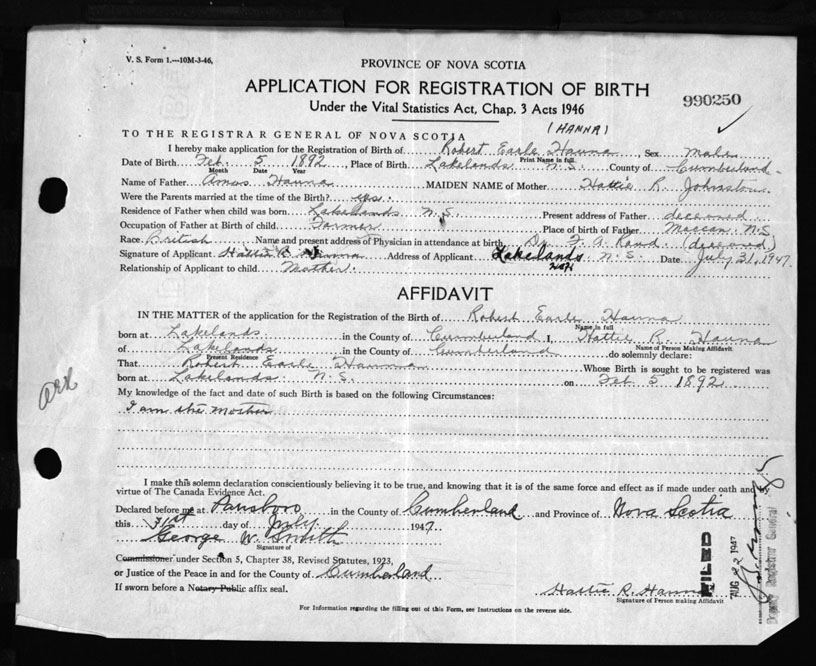 V. S. Form 1.—10M-3-46,
PROVINCE OF NOVA SCOTIA
APPLICATION FOR REGISTRATION OF BIRTH
Under the Vital Statistics Act, Chap. 3 Acts 1946
990250
(HANNA)
TO THE REGISTRAR GENERAL OF NOVA SCOTIA
I hereby make application for the Registration of Birth of Robert Earle Hanna, Sex Male
Print Name in full
Date of Birth Feb. 5 1892, Place of Birth Lakelands N.S. County of Cumberland
Month Date Year
Name of Father Amos Hanna MAIDEN NAME of Mother Hattie R. Johnston
Were the Parents married at the time of the Birth? yes.
Residence of Father when child was born Lakelands N.S. Present address of Father deceased
Occupation of Father at Birth of child Farmer Place of Birth of Father Maccan N.S
Race British Name and present address of Physician in attendance at birth Dr. F. A. Rand (deceased)
Signature of Applicant Hattie R Hanna Address of Applicant Lakelands N.S. Date July 31, 1947
Relationship of Applicant to child Mother.
AFFIDAVIT
IN THE MATTER of the application for the Registration of Birth of Robert Earle Hanna
Name in full
born at Lakelands in the County of Cumberland I, Hattie R. Hanna
Name of Person Making Affidavit
of Lakelands in the County of Cumberland do solemnly declare:
Present Residence
That Robert Earle Hanna Whose Birth is sought to be registered was
born at Lakelands N.S. on Feb 5 1892
My knowledge of the fact and date of such Birth is based on the following Circumstances:
I am the mother
I make this solemn declaration conscientiously believing it to be true, and knowing that it is of the same force and effect as if made under oath and by
virtue of The Canada Evidence Act.
Declared before me at Parrsboro in the County of Cumberland and Province of Nova Scotia
this 31st day of July 1947
George W. Smith
Signature of
Commissioner under Section 5, Chapter 38, Revised Statutes, 1923,
or Justice of the Peace in and for the County of Cumberland
If sworn before a Notary Public affix seal.
Hattie R. Hanna
Signature of Person making Affidavit
FILED
AUG 22 1947
Deputy Registrar General
For Information regarding the filling out of this Form, see Instructions on the reverse side.